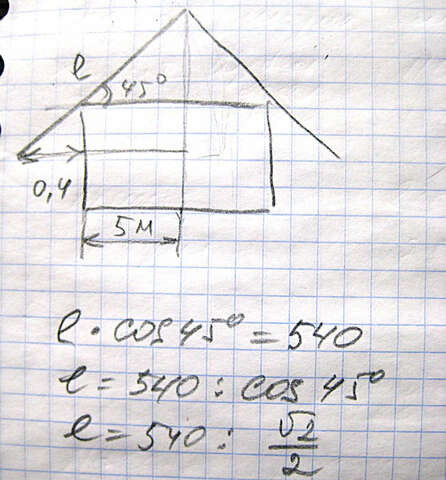 l
45°
0,4
5м
l · cos 45° = 540
l = 540 : cos 45°
l = 540 : √2/2